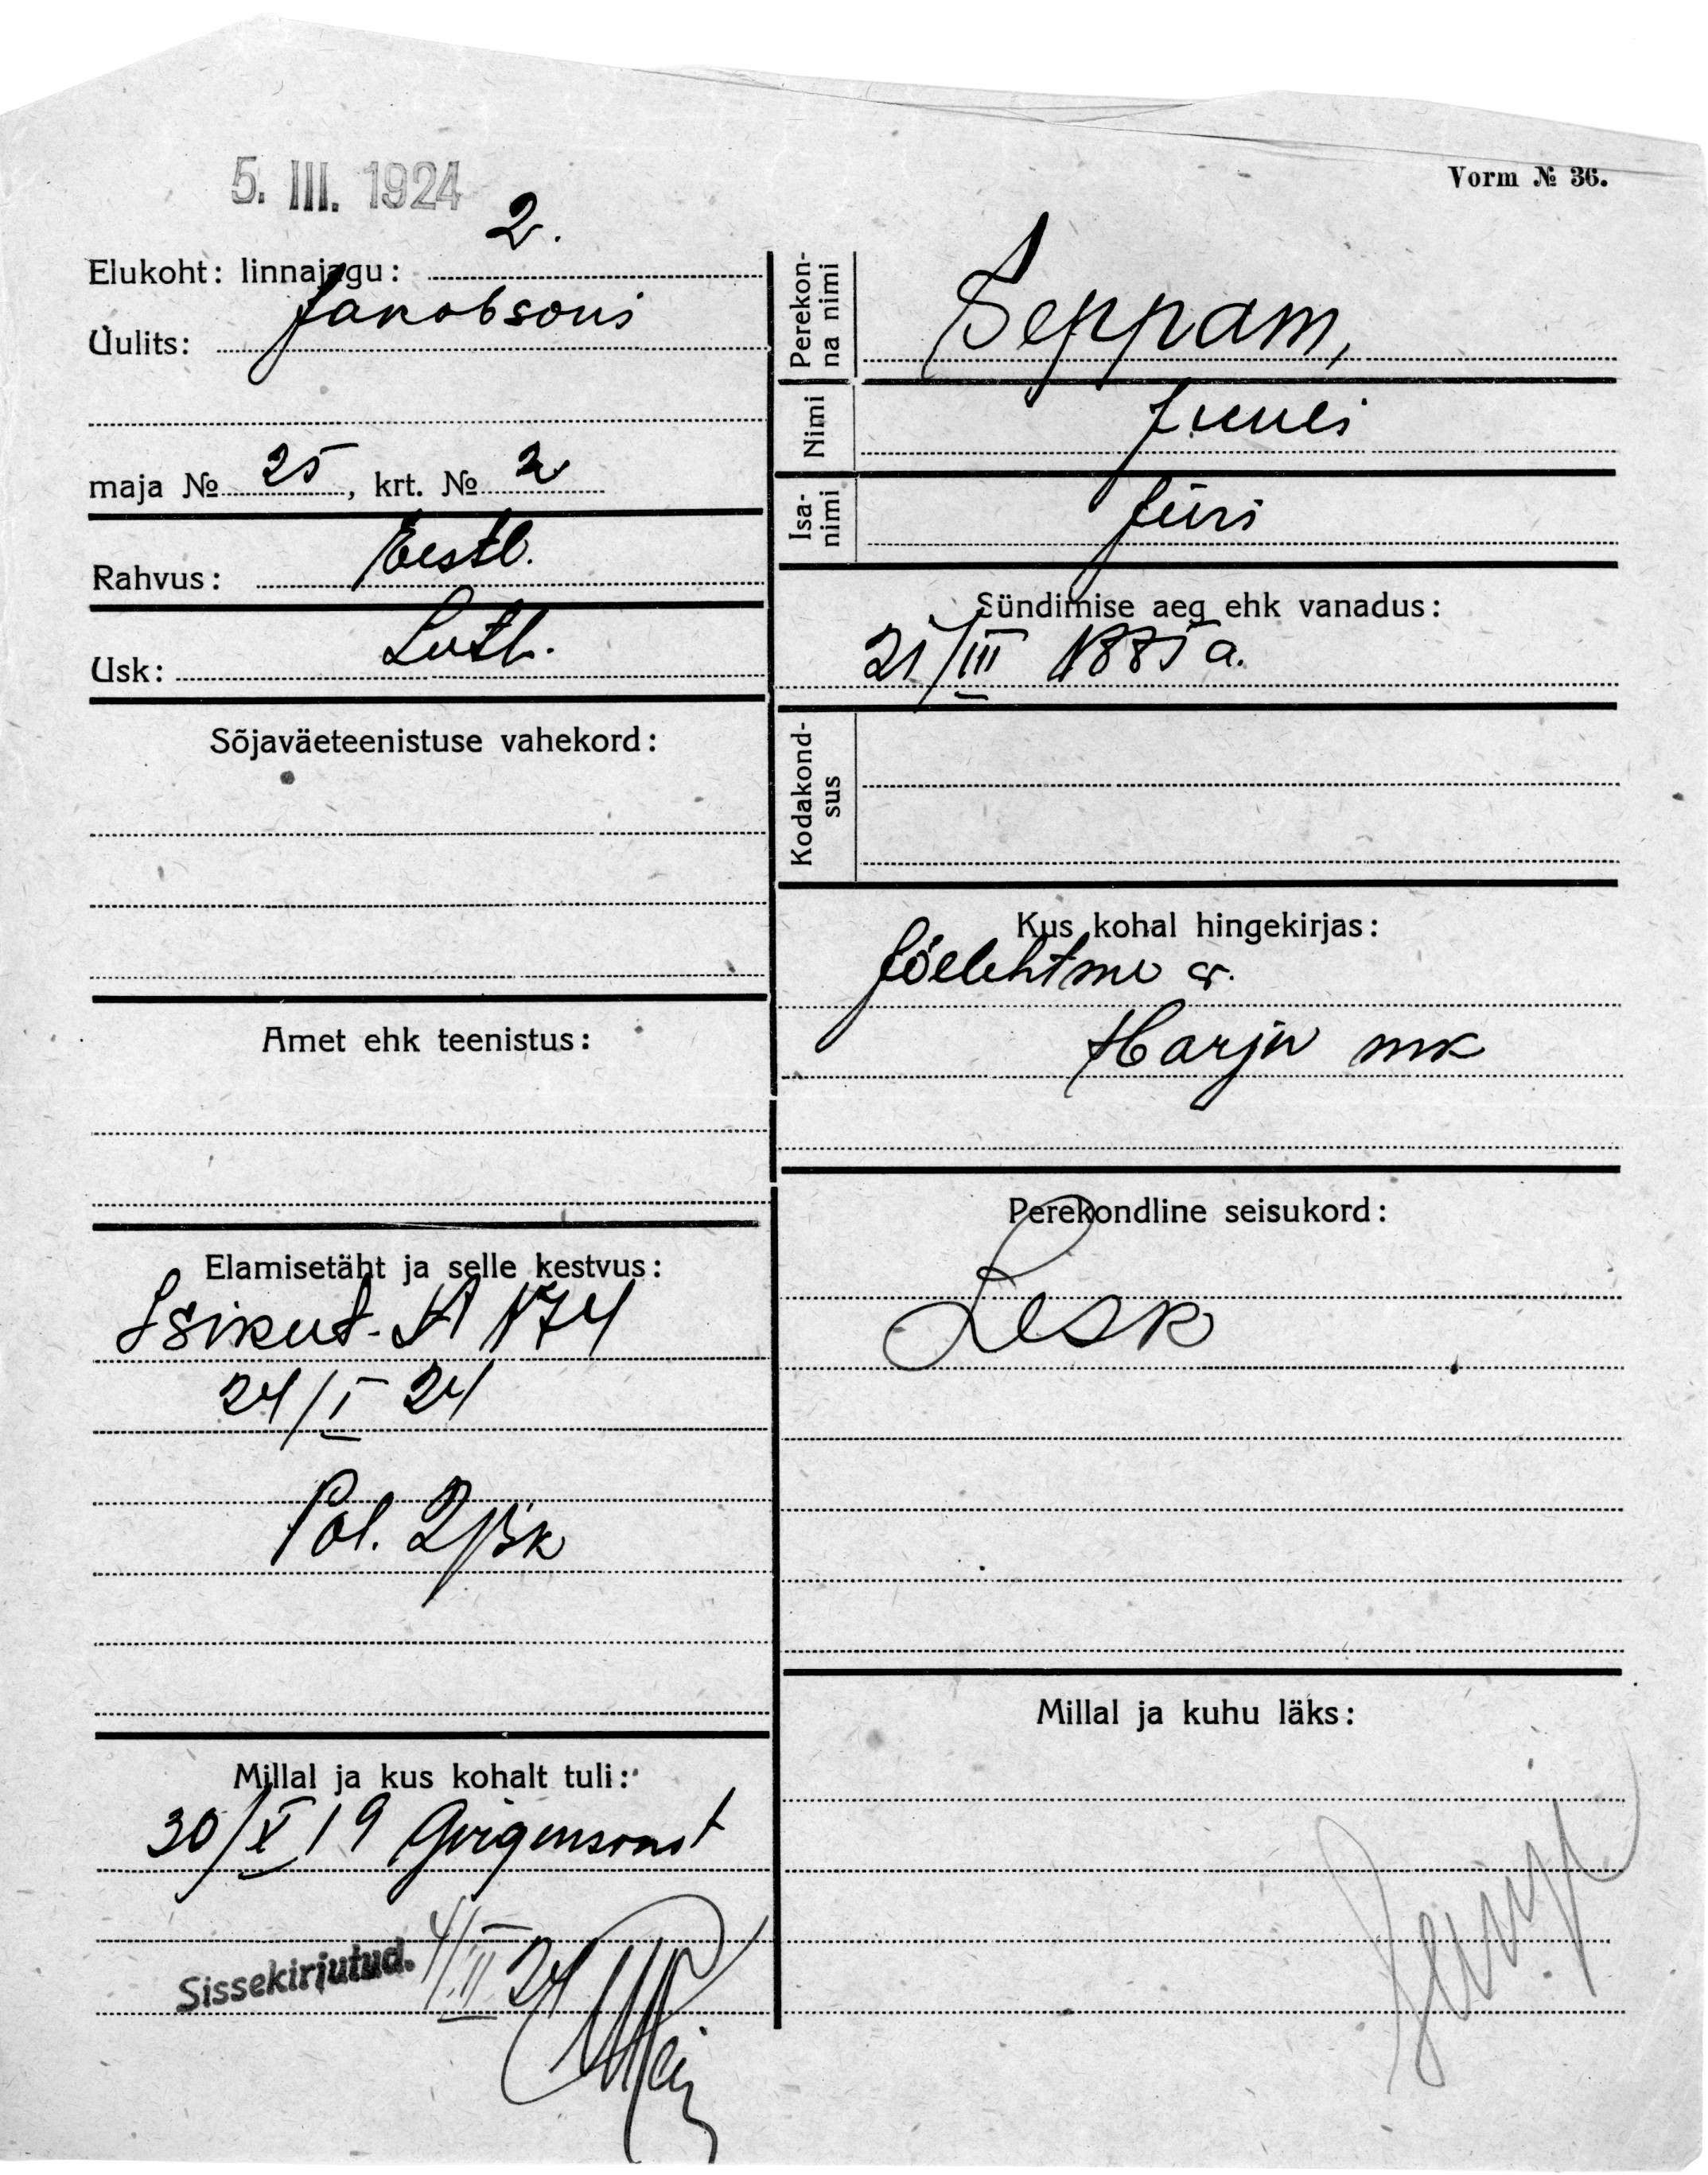 5. III. 1924
Vorm № 36.
Elukoht: linnajagu: 2.
Uulits: Jakobsoni
maja № 25, krt. № 2
Rahvus: Eestl.
Usk: Luth.
Sõjaväeteenistuse vahekord:
Amet ehk teenistus:
Elamisetäht ja selle kestvus:
Isikut.
24/I 24
Pol. 2 jsk
Millal ja kus kohalt tuli:
30/X 19 Girgensoni t
Sissekirjutud. 4/III 24
Perekon-
na nimi
Seppam,
Nimi
Juuli
Isa-
nimi
Jüri
Sündimise aeg ehk vanadus:
21/III 1885 a.
Kodakond-
sus
Kus kohal hingekirjas:
Jõelehtme v.
Harju mk
Perekondline seisukord:
Lesk
Millal ja kuhu läks: